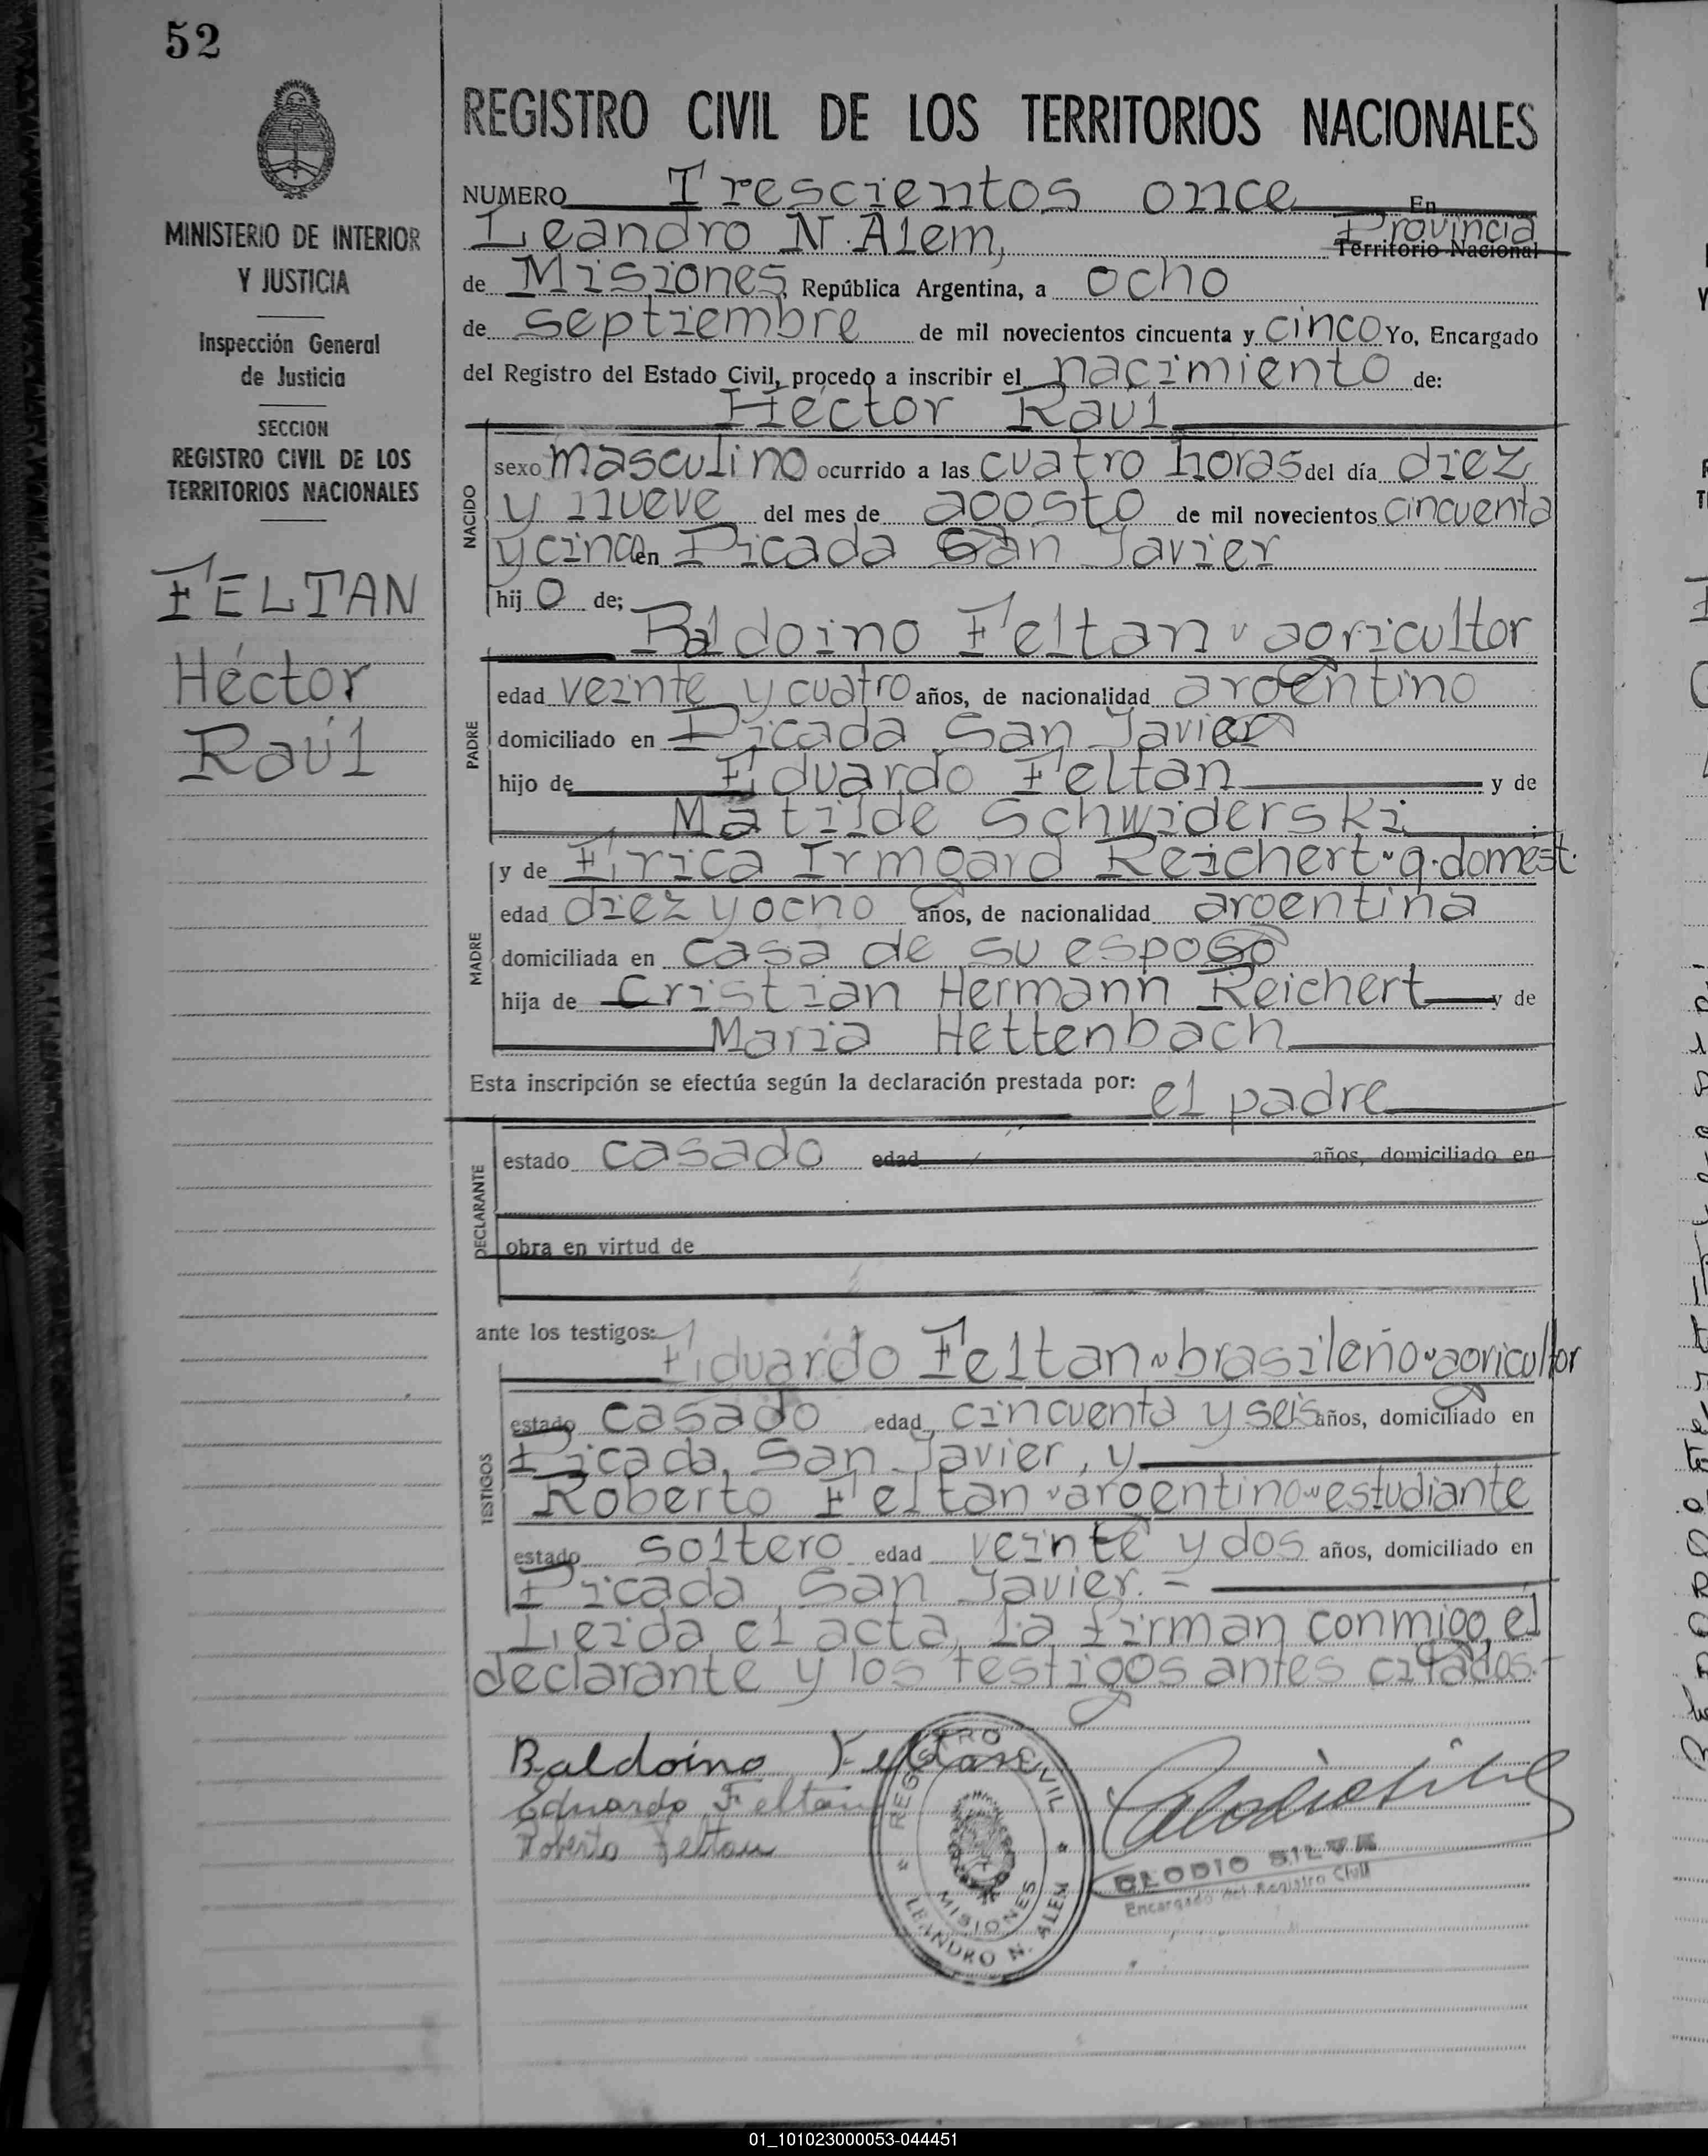 52
MINISTERIO DE INTERIOR
Y JUSTICIA
Inspección General
de Justicia
SECCION
REGISTRO CIVIL DE LOS
TERRITORIOS NACIONALES
FELTAN
Héctor
Raúl
REGISTRO CIVIL DE LOS TERRITORIOS NACIONALES
NUMERO Trescientos once En
Leandro N. Alem, Provincia
Territorio Nacional
de Misiones, República Argentina, a ocho
de septiembre de mil novecientos cincuenta y cinco Yo, Encargado
del Registro del Estado Civil, procedo a inscribir el nacimiento de:
Héctor Raúl
NACIDO
sexo masculino ocurrido a las cuatro horas del día diez
y nueve del mes de agosto de mil novecientos cincuenta
y cinco en Picada San Javier
hij o de;
Baldoino Feltan - agricultor
PADRE
edad veinte y cuatro años, de nacionalidad argentino
domiciliado en Picada San Javier
hijo de Eduardo Feltan y de
Matilde Schwiderski
y de Erica Irmgard Reichert - q. domést.
MADRE
edad diez y ocho años, de nacionalidad argentina
domiciliada en casa de su esposo
hija de Cristian Hermann Reichert y de
Maria Hettenbach
Esta inscripción se efectúa según la declaración prestada por: el padre
DECLARANTE
estado casado edad años, domiciliado en
obra en virtud de
ante los testigos:
Eduardo Feltan - brasileño - agricultor
TESTIGOS
estado casado edad cincuenta y seis años, domiciliado en
Picada San Javier, y
Roberto Feltan - argentino - estudiante
estado soltero edad veinte y dos años, domiciliado en
Picada San Javier. -
Leida el acta, la firman conmigo, el
declarante y los testigos antes citados.-
Baldoino Feltan
Eduardo Feltan
Roberto Feltan
REGISTRO CIVIL
MISIONES
LEANDRO N. ALEM
CLODIO SILVA
Encargado del Registro Civil
01_101023000053-044451